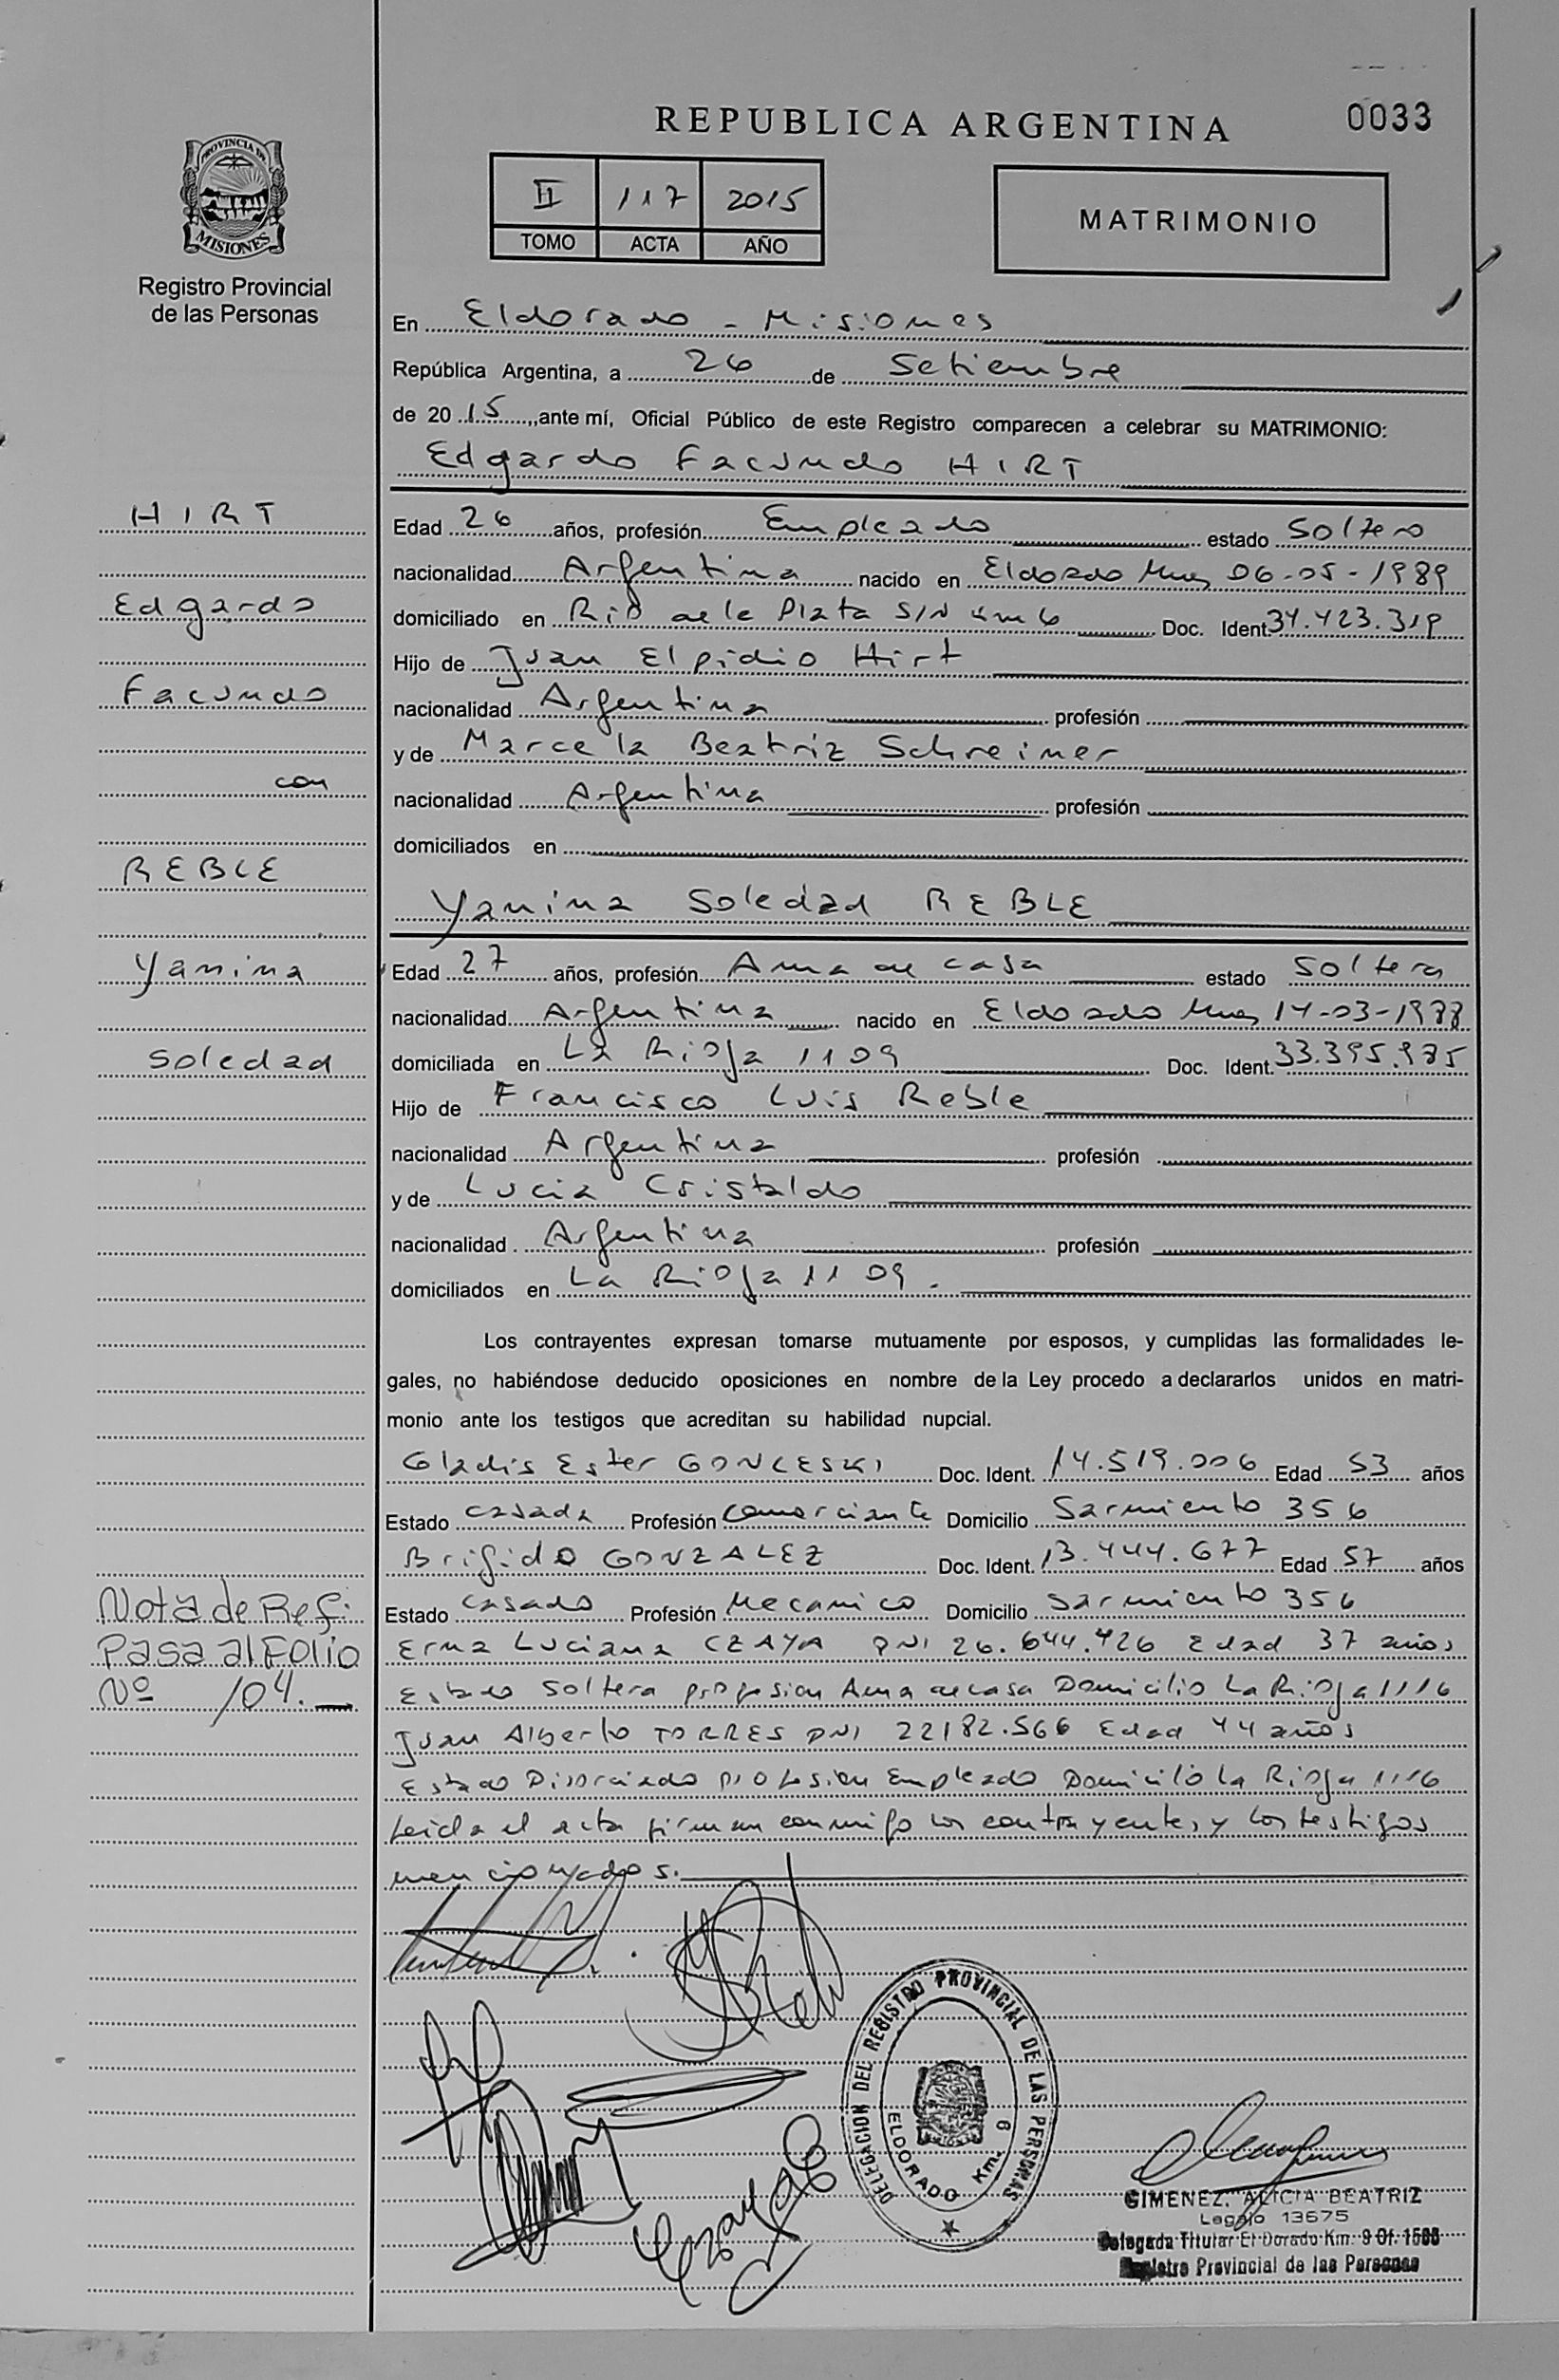 REPUBLICA ARGENTINA
0033
II 117 2015
TOMO ACTA AÑO
MATRIMONIO
PROVINCIA DE
MISIONES
Registro Provincial
de las Personas
En Eldorado - Misiones
República Argentina, a 26 de Setiembre
de 2015, ante mí, Oficial Público de este Registro comparecen a celebrar su MATRIMONIO:
Edgardo Facundo HIRT
HIRT
Edgardo
Facundo
con
REBLE
Yanina
Soledad
Edad 26 años, profesión Empleado estado Soltero
nacionalidad Argentina nacido en Eldorado Mnes 06-05-1989
domiciliado en Rio de la Plata S/N km 6 Doc. Ident. 34.423.319
Hijo de Juan Elpidio Hirt
nacionalidad Argentina profesión
y de Marcela Beatriz Schreiner
nacionalidad Argentina profesión
domiciliados en
Yanina Soledad REBLE
Edad 27 años, profesión Ama de casa estado Soltera
nacionalidad Argentina nacido en Eldorado Mnes 14-03-1988
domiciliada en La Rioja 1109 Doc. Ident. 33.395.985
Hijo de Francisco Luis Reble
nacionalidad Argentina profesión
y de Lucia Cristaldo
nacionalidad Argentina profesión
domiciliados en La Rioja 1109.
Los contrayentes expresan tomarse mutuamente por esposos, y cumplidas las formalidades le-
gales, no habiéndose deducido oposiciones en nombre de la Ley procedo a declararlos unidos en matri-
monio ante los testigos que acreditan su habilidad nupcial.
Gladis Ester GONCESKI Doc. Ident. 14.519.006 Edad 53 años
Estado casada Profesión comerciante Domicilio Sarmiento 356
Brigido GONZALEZ Doc. Ident. 13.444.677 Edad 57 años
Estado casado Profesión Mecanico Domicilio Sarmiento 356
Erma Luciana CZAYA DNI 26.644.426 Edad 37 años
Estado Soltera profesion Ama de casa Domicilio La Rioja 1116
Juan Alberto TORRES DNI 22182.566 Edad 44 años
Estado Divorciado profesion Empleado Domicilo La Rioja 1116
Leida el acta firman conmigo los contrayentes y los testigos
mencionados.
Nota de Ref:
Pasa al Folio
Nº 104.
DELEGACION DEL REGISTRO PROVINCIAL DE LAS PERSONAS
ELDORADO Km. 9
GIMENEZ, ALICIA BEATRIZ
Legajo 13675
Delegada Titular El Dorado Km. 9 Of. 1586
Registro Provincial de las Personas